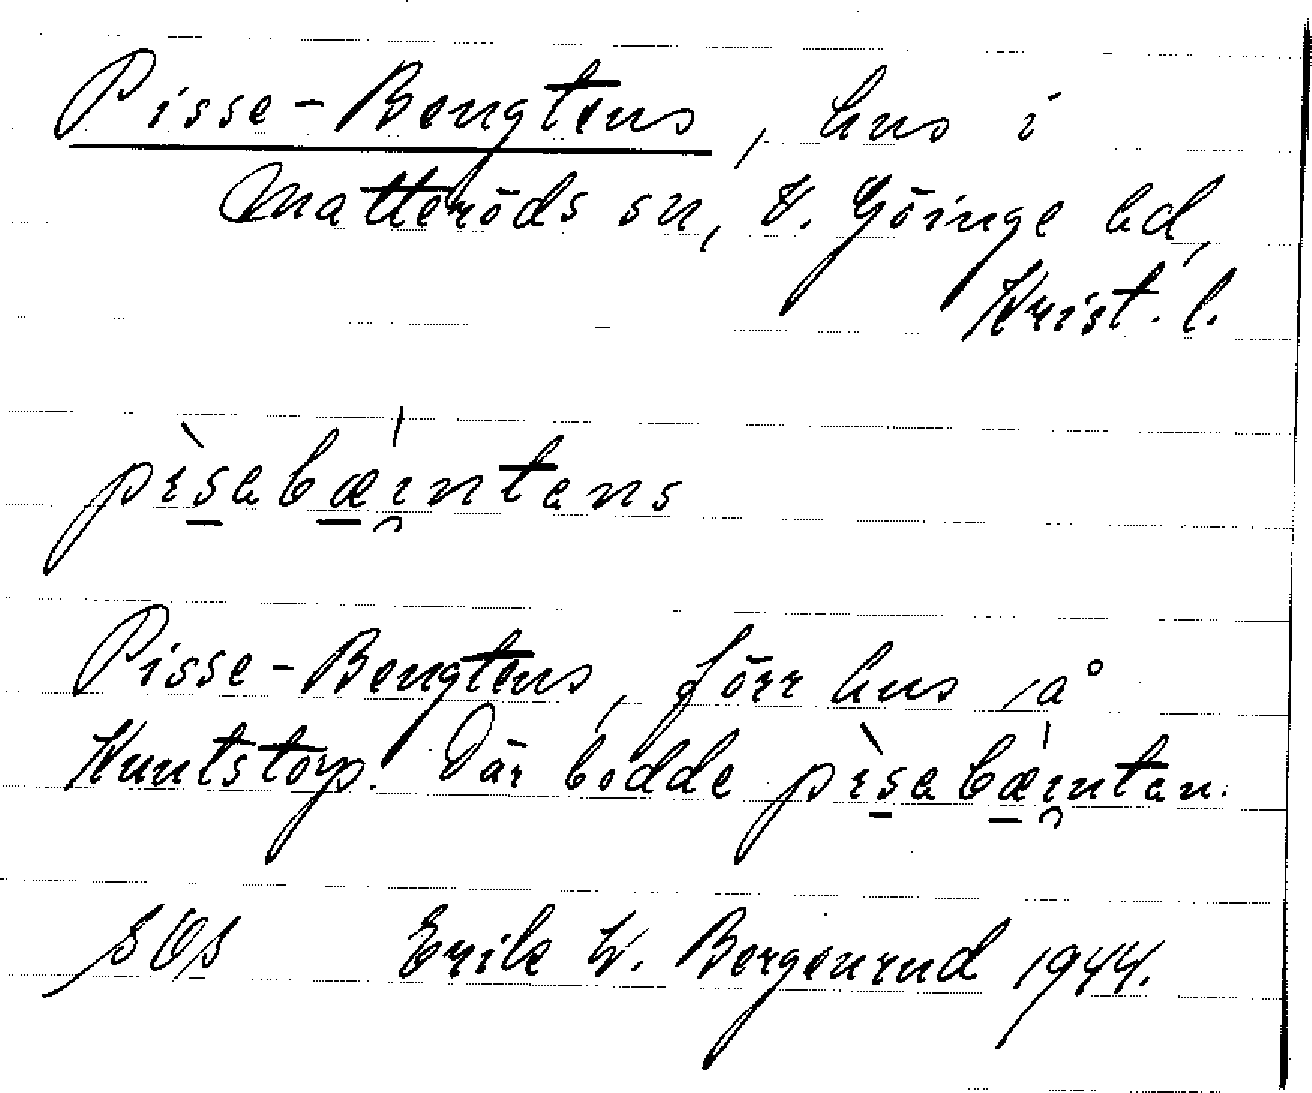 Pisse-Bengtens, hus i
Matteröds sn, V. Göinge hd,
Krist. l.
pìsabæ̀i̯ntans
Pisse-Bengtens, förr hus på
Kuntstorp. Där bodde pìsabæi̯ntan.
SOS Erik W. Bergenrud 1944.